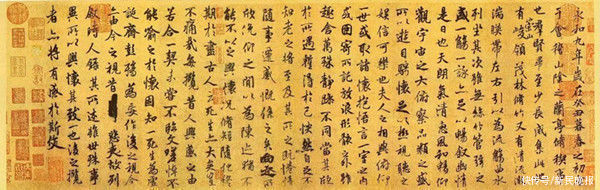 永和九年歲在癸丑暮春之初會
于會稽山陰之蘭亭脩稧事
也群賢畢至少長咸集此地
有崇山峻領茂林脩竹又有清流激
湍暎帶左右引以為流觴曲水
列坐其次雖無絲竹管弦之
盛一觴一詠亦足以暢敘幽情
是日也天朗氣清惠風和暢仰
觀宇宙之大俯察品類之盛
所以遊目騁懷足以極視聽之
娛信可樂也夫人之相與俯仰
一世或取諸懷抱悟言一室之內
或因寄所託放浪形骸之外雖
趣舍萬殊靜躁不同當其欣
於所遇暫得於己怏然自足不
知老之將至及其所之既惓情
隨事遷感慨係之矣向之所
欣俛仰之閒以為陳迹猶不
能不以之興懷況脩短隨化終
期於盡古人云死生亦大矣豈
不痛哉每攬昔人興感之由
若合一契未嘗不臨文嗟悼不
能喻之於懷固知一死生為虛
誕齊彭殤為妄作後之視今
亦由今之視昔悲夫故列
敘時人錄其所述雖世殊事
異所以興懷其致一也後之攬
者亦將有感於斯文
快传号/新民晚报